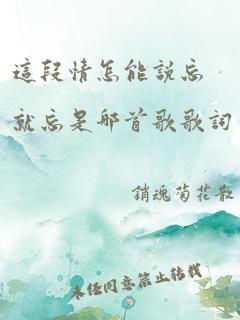 這段情怎能說忘
就忘是那首歌歌詞
銷魂菊花散
未经同意禁止转载